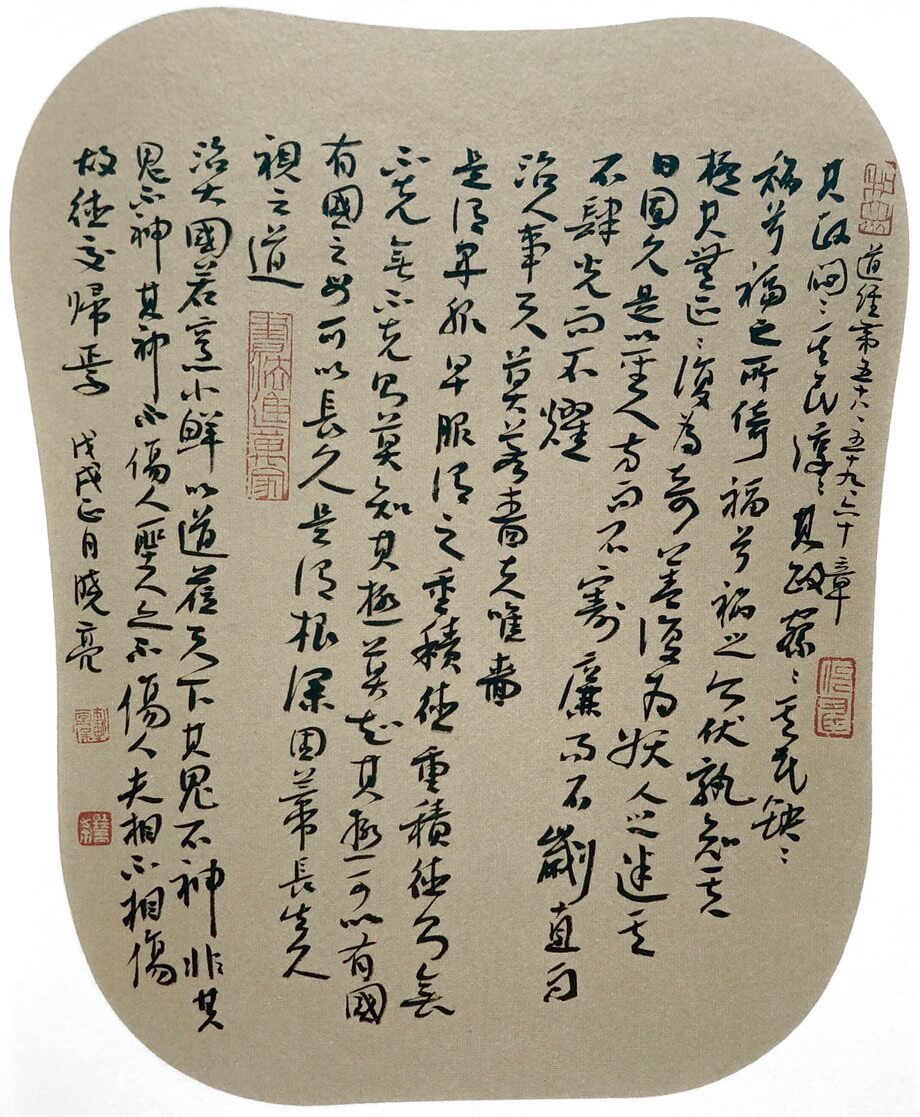 道經第五十八、五十九、六十章
其政悶〻其民淳〻其政察〻其民缺〻
禍兮福之所倚福兮禍之所伏孰知其
極其無正〻復為奇善復为妖人之迷其
日固久是以聖人方而不割廉而不劌直而
不肆光而不耀
治人事天莫若嗇夫唯嗇
是谓早服早服谓之重積德重積德則無
不克無不克則莫知其極莫知其極可以有國
有國之母可以長久是谓根深固蒂長生久
視之道
書法進萬家
治大國若烹小鮮以道蒞天下其鬼不神非其
鬼不神其神不傷人聖人亦不傷人夫相不相傷
故德交歸焉 戊戌正月曉亮